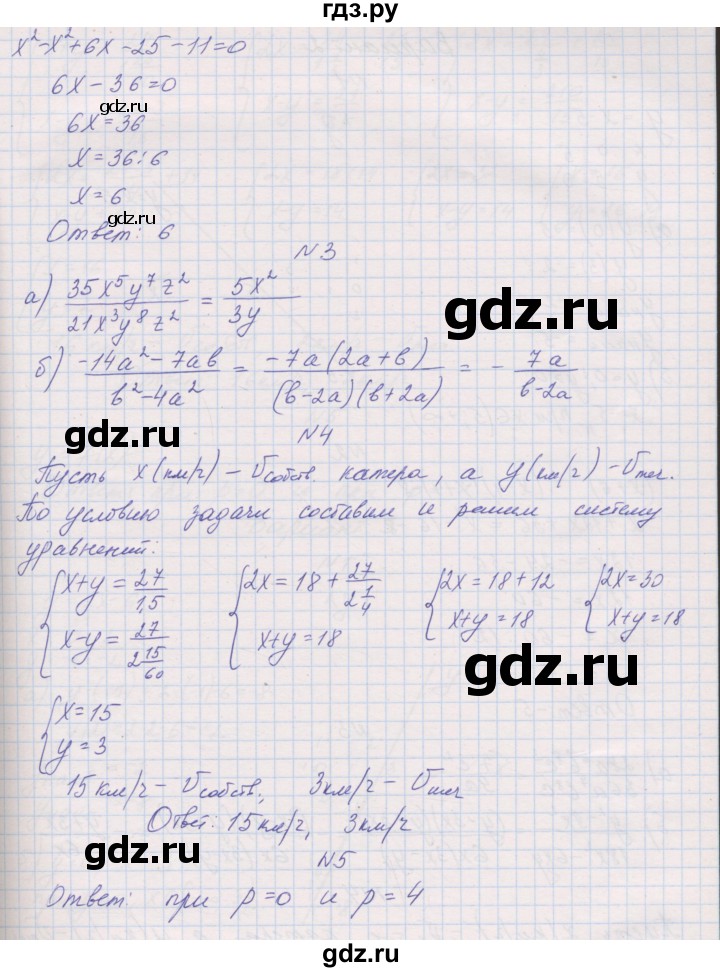 гдз.ру
x² - x² + 6x - 25 - 11 = 0
6x - 36 = 0
gdz.ru
6x = 36
x = 36 : 6
x = 6
gdz.ru
Ответ: 6
N3
а) 35x⁵y⁷z² / 21x³y⁸z² = 5x² / 3y
gdz.ru
б) -14a² - 7ab / b² - 4a² = -7a(2a+b) / (b-2a)(b+2a) = - 7a / b-2a
gdz.ru
N4
Пусть x (км/ч) - υсобств. катера, а y (км/ч) - υтеч.
По условию задачи составим и решим систему
gdz.ru
уравнений:
{ x+y = 27/1,5   { 2x = 18 + 27/2 1/4   { 2x = 18 + 12   { 2x = 30
{ x-y = 27/2 15/60   { x+y = 18   { x+y = 18   { x+y = 18
gdz.ru
gdz.ru
{ x = 15
{ y = 3
15 км/ч - υсобств, 3 км/ч - υтеч
Ответ: 15 км/ч, 3 км/ч
gdz.ru
N5
Ответ: при p = 0 и p = 4
gdz.ru
gdz.ru